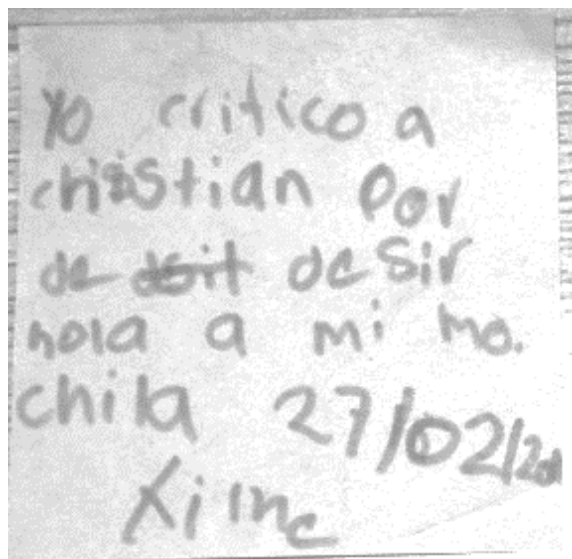 Yo critico a
chisstian Por
de desir
hola a mi mo.
chila 27/02/20